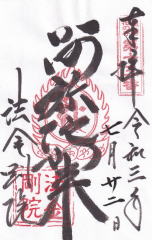 奉拝
令和三年
七月廿二日
阿弥陀如来
法金剛院
法金
剛院